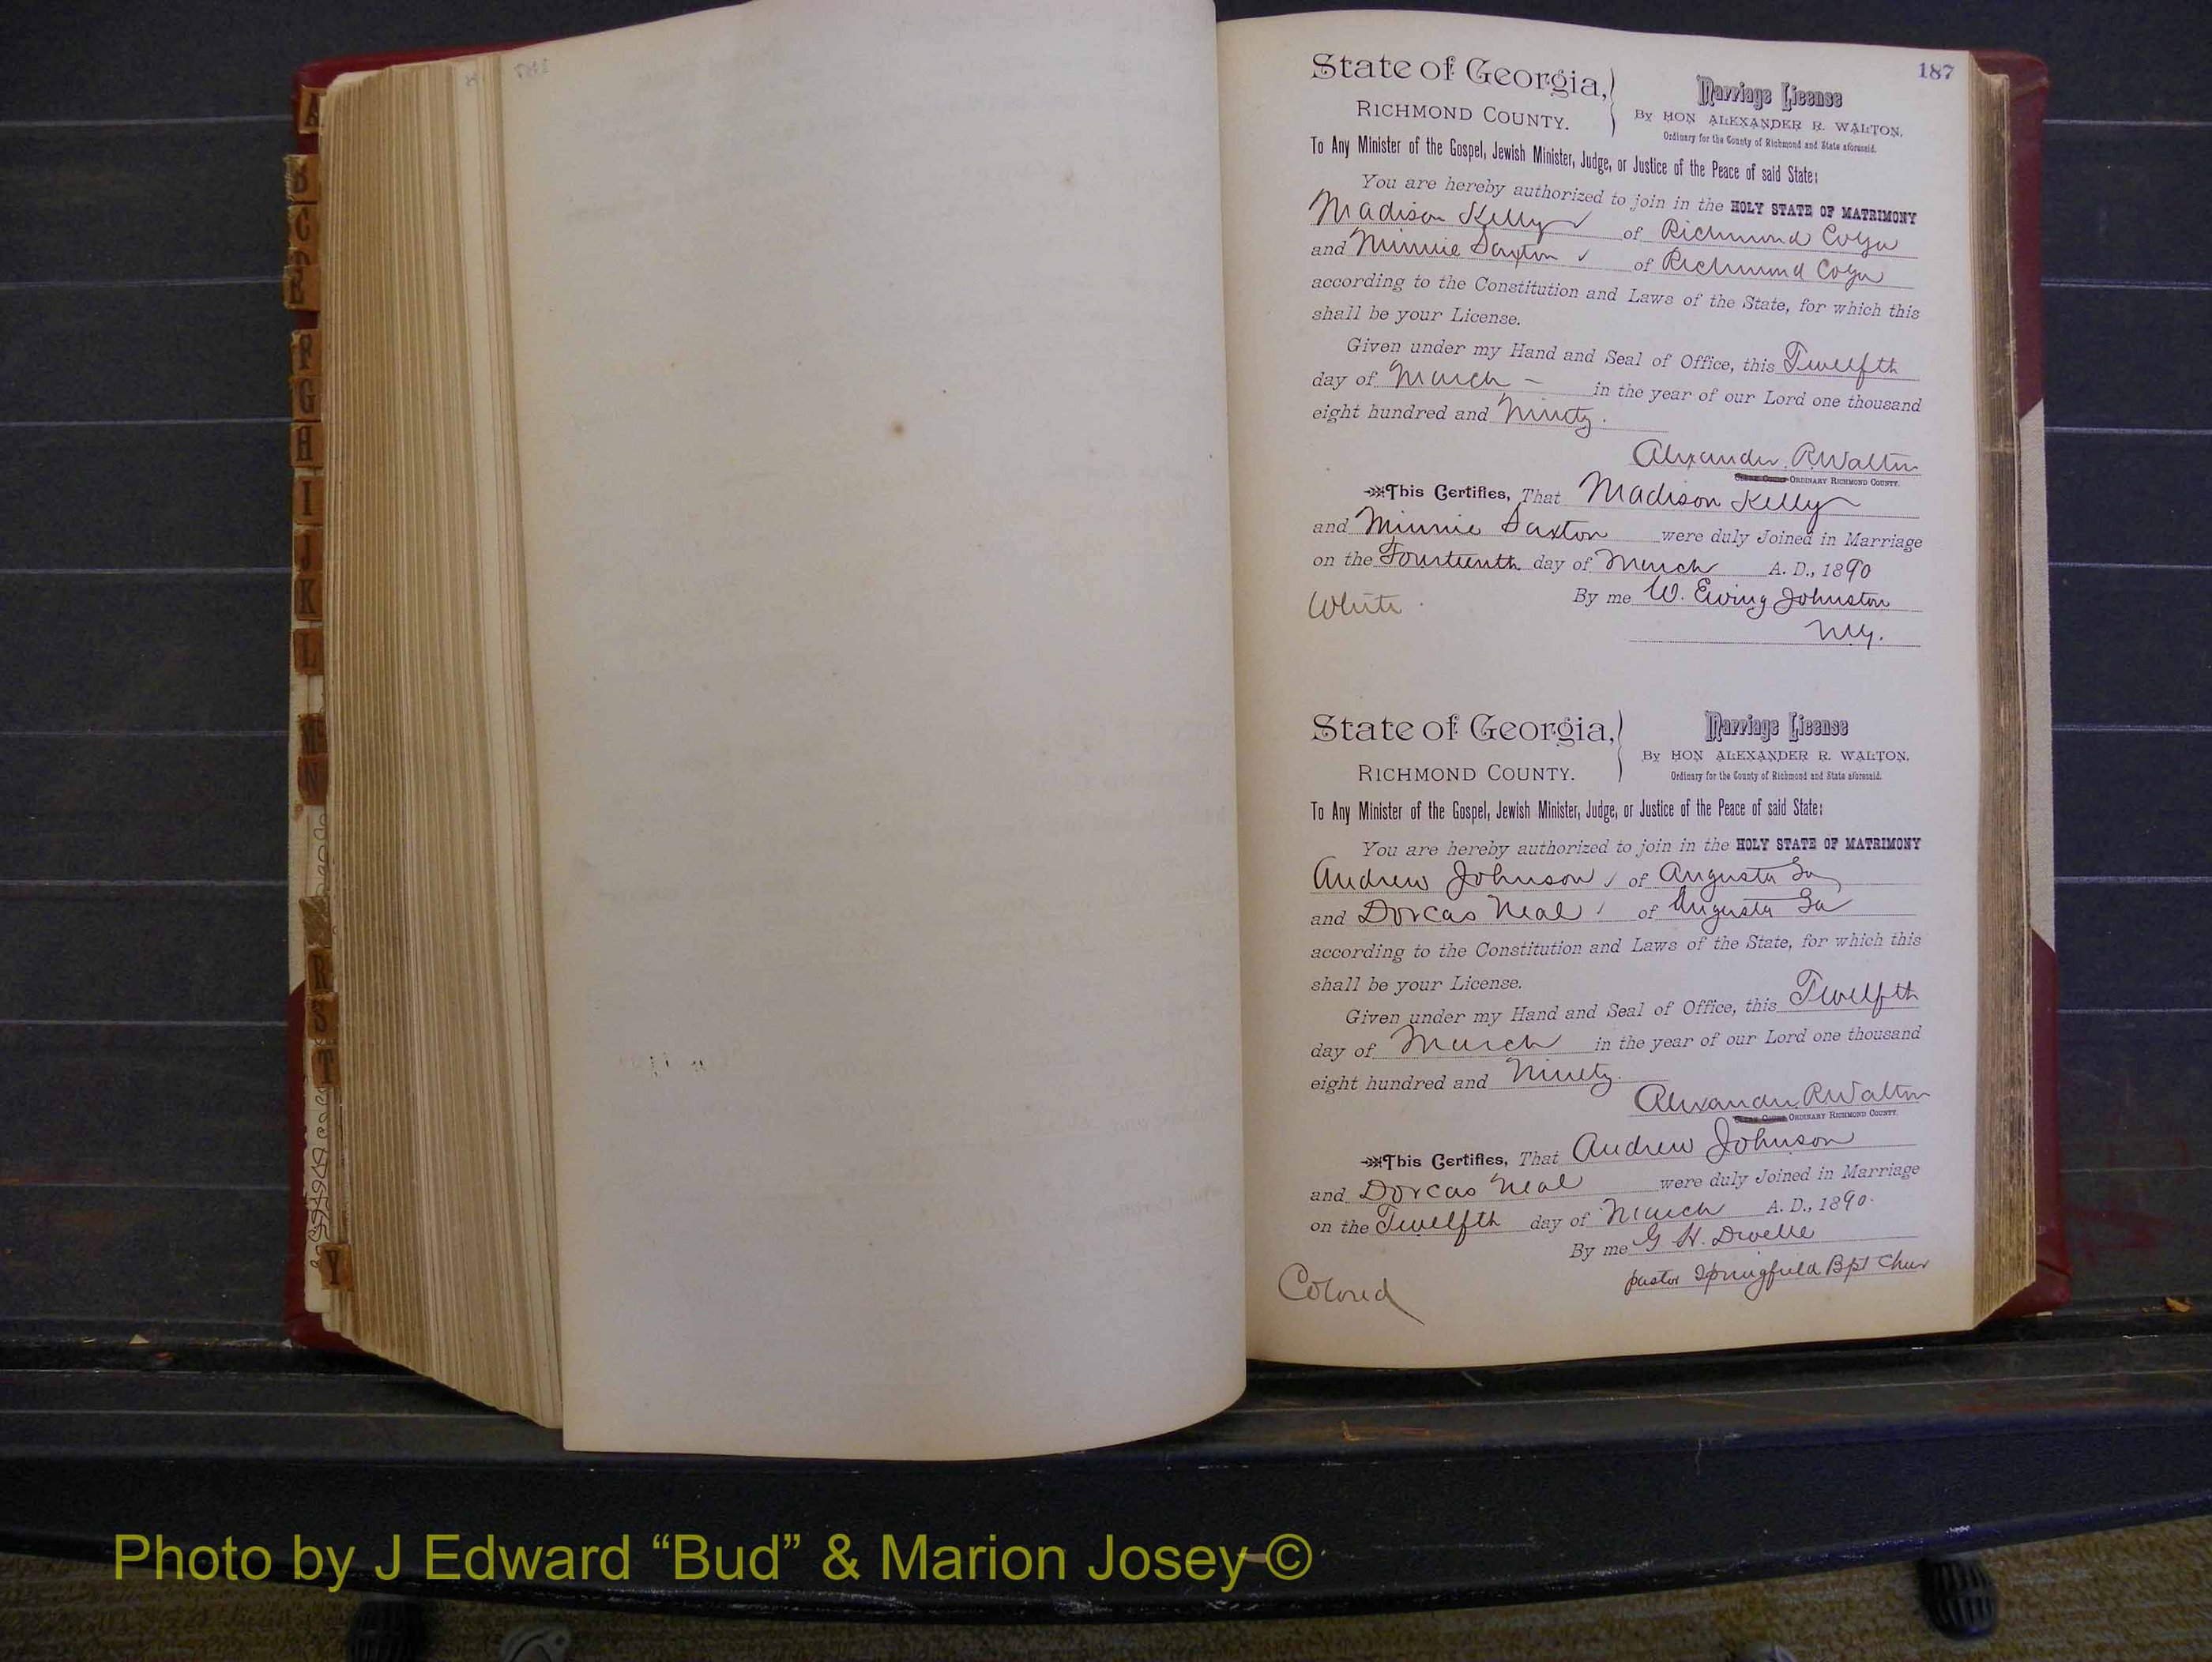 187
State of Georgia,
RICHMOND COUNTY.
Marriage License
By HON ALEXANDER R. WALTON,
Ordinary for the County of Richmond and State aforesaid.
To Any Minister of the Gospel, Jewish Minister, Judge, or Justice of the Peace of said State:
You are hereby authorized to join in the HOLY STATE OF MATRIMONY
Madison Kelly of Richmond Co Ga
and Minnie Saxton of Richmond Co Ga
according to the Constitution and Laws of the State, for which this
shall be your License.
Given under my Hand and Seal of Office, this Twelfth
day of March in the year of our Lord one thousand
eight hundred and Ninety.
Alexander R Walton
ORDINARY RICHMOND COUNTY.
This Certifies, That Madison Kelly
and Minnie Saxton were duly Joined in Marriage
on the Fourteenth day of March A. D., 1890
White By me W. Ewing Johnston
State of Georgia,
RICHMOND COUNTY.
Marriage License
By HON ALEXANDER R. WALTON,
Ordinary for the County of Richmond and State aforesaid.
To Any Minister of the Gospel, Jewish Minister, Judge, or Justice of the Peace of said State:
You are hereby authorized to join in the HOLY STATE OF MATRIMONY
Andrew Johnson of Augusta Ga
and Dorcas Neal of Augusta Ga
according to the Constitution and Laws of the State, for which this
shall be your License.
Given under my Hand and Seal of Office, this Twelfth
day of March in the year of our Lord one thousand
eight hundred and Ninety.
Alexander R Walton
ORDINARY RICHMOND COUNTY.
This Certifies, That Andrew Johnson
and Dorcas Neal were duly Joined in Marriage
on the Twelfth day of March A. D., 1890.
By me G. W. Dwelle
Colored pastor Springfield Bpt Chur
A
B
C
F
G
H
I
J
K
L
N
R
S
T
Y
Photo by J Edward “Bud” & Marion Josey ©